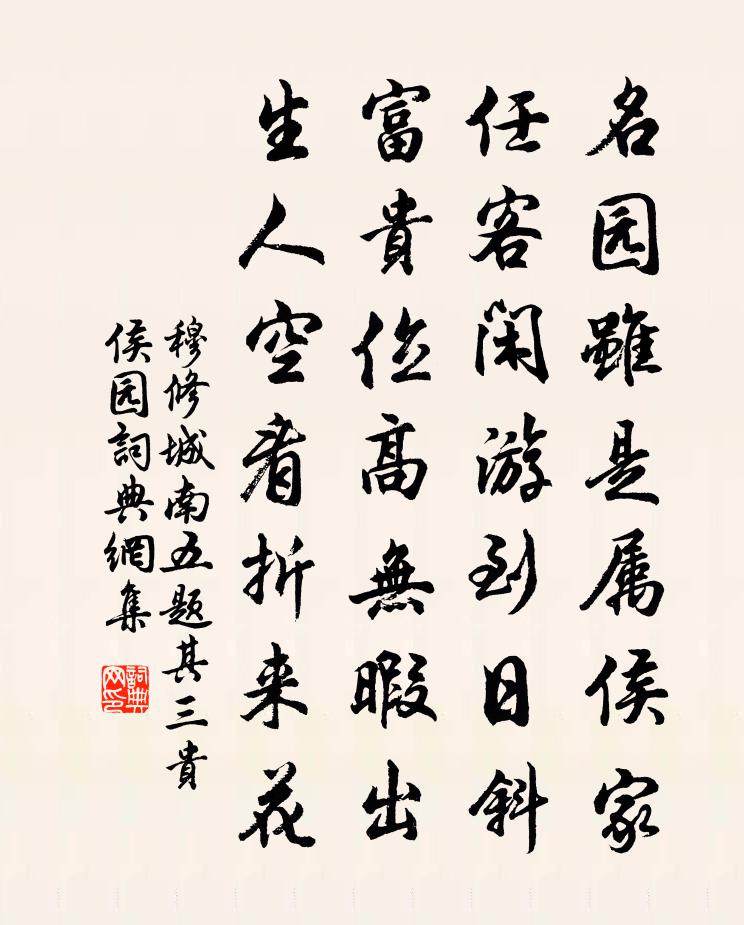 名园雖是属侯家
任客闲游到日斜
富貴位高無暇出
生人空看折来花
穆修城南五题其三貴
侯园詞典網集
詞典
网印